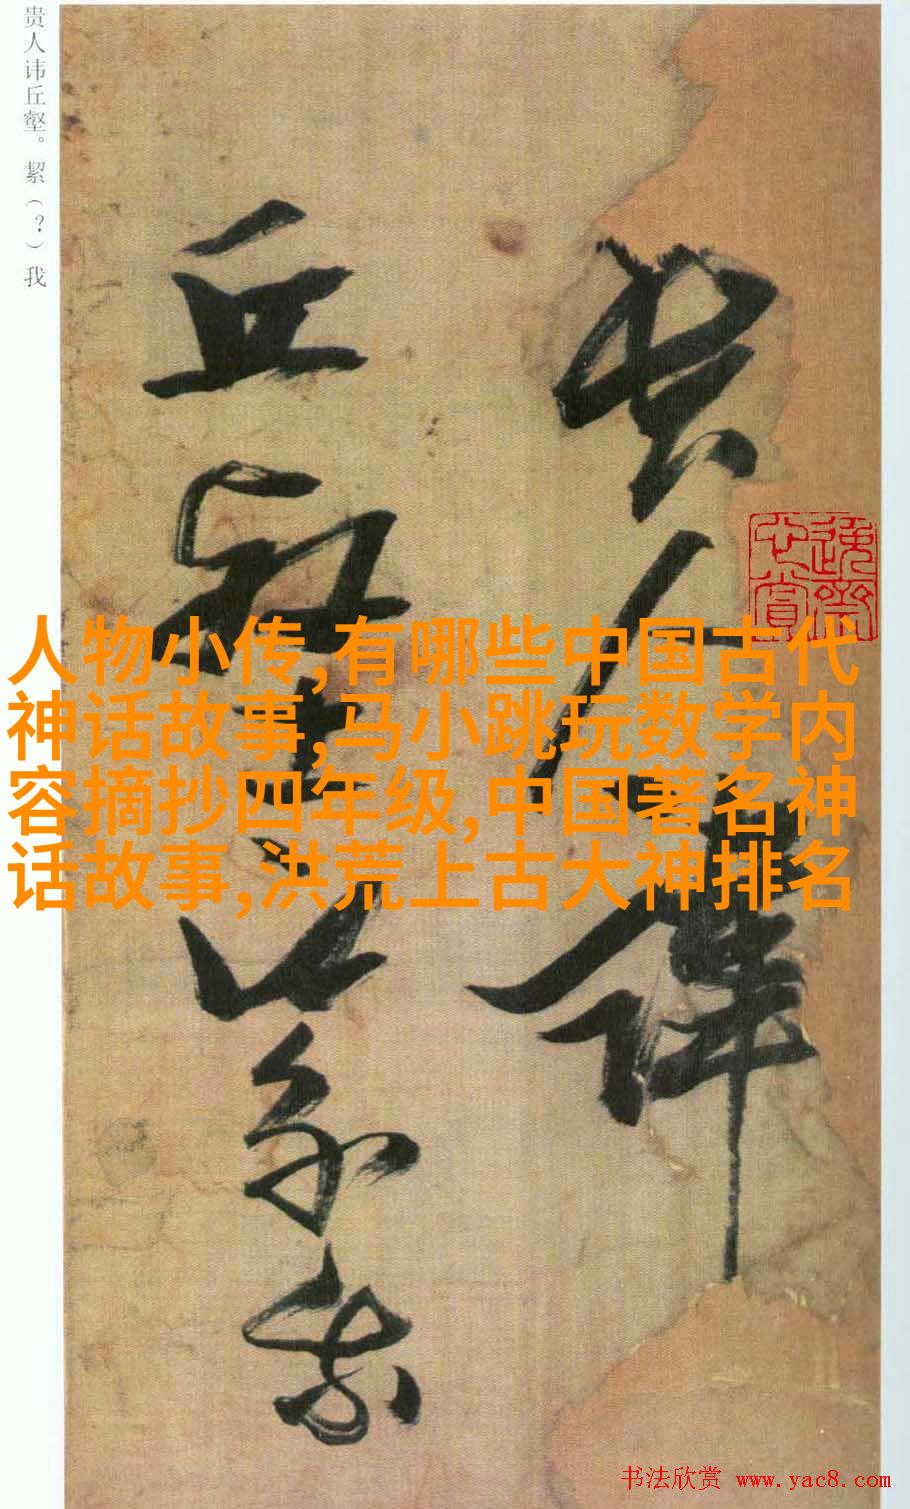 贵人讳丘壑。絜（？）我
貴人諱
丘壑
我
人物小传,有哪些中国古代
神话故事,马小跳玩数学内
容摘抄四年级,中国著名神
话故事,洪荒上古大神排名
书法欣赏 www.yac8.com